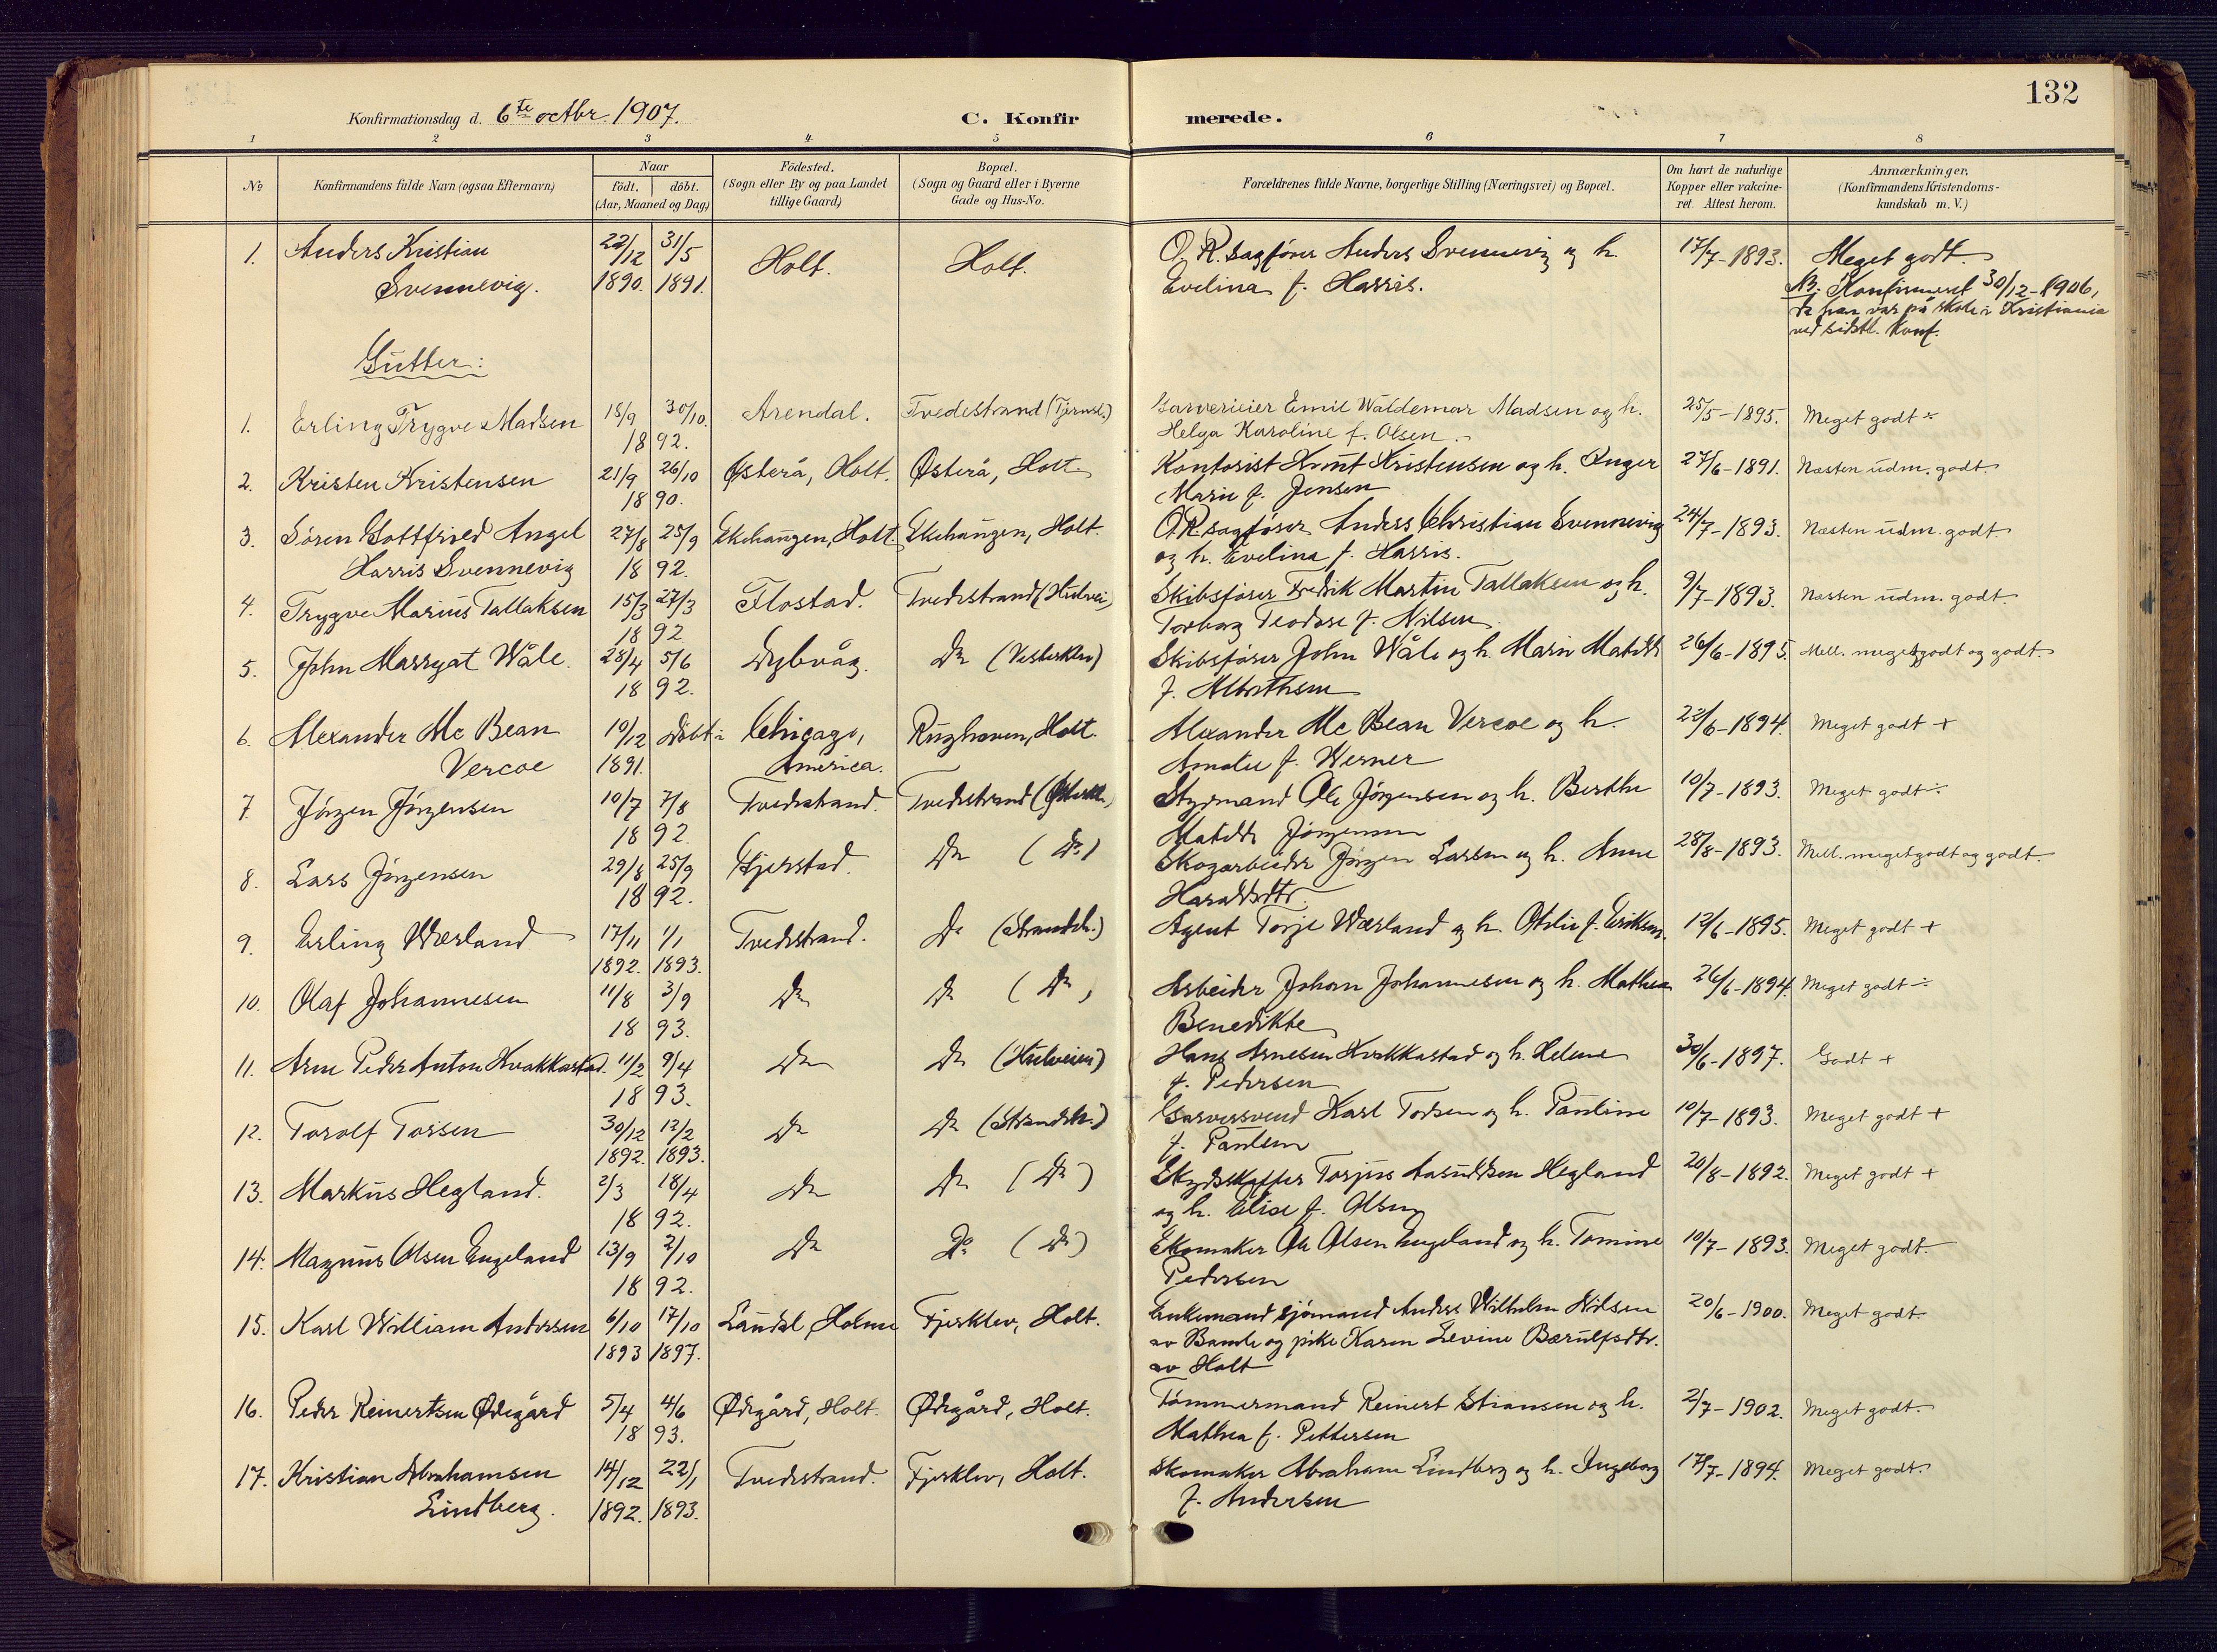 132
Konfirmationsdag d. 6te octbr. 1907.
C. Konfirmerede.
1 2 3 4 5 6 7 8
No
Konfirmandens fulde Navn (ogsaa Efternavn)
Naar
födt. döbt.
(Aar, Maaned og Dag)
Födested.
(Sogn eller By og paa Landet
tillige Gaard)
Bopæl.
(Sogn og Gaard eller i Byerne
Gade og Hus-No.
Forældrenes fulde Navne, borgerlige Stilling (Næringsvei) og Bopæl.
Om havt de naturlige
Kopper eller vakcine-
ret. Attest herom.
Anmærkninger,
(Konfirmandens Kristendoms-
kundskab m. V.)
1. Anders Kristian 22/12 31/5 Holt. Holt. O.R. Sagfører Anders Svennevig og h. 17/7-1893. Meget godt.
Svennevig. 1890. 1891. Evelina f. Harris. NB. Konfirmeret 30/12-1906,
da han var på skole i Kristiania
ved sidstl. Konf.
Gutter:
1. Erling Trygve Madsen 18/9 30/10. Arendal. Tvedestrand (Tjernsl.) Garverieier Emil Waldemar Madsen og h. 25/5-1895. Meget godt
1892. Helga Karoline f. Olsen.
2. Kristen Kristensen 21/9 26/10 Østerå, Holt. Østerå, Holt. Kontorist Knut Kristensen og h. Inger 27/6-1891. Næsten udm. godt.
1890. Marie f. Jensen
3. Søren Gottfried Angel 27/8 25/9 Ekehaugen, Holt Ekehaugen, Holt. O.R. sagfører Anders Christian Svennevig 24/7-1893. Næsten udm. godt.
Harris Svennevig 1892. og h. Evelina f. Harris.
4. Trygve Marius Tallaksen 15/3 27/3 Flostad. Tvedestrand (Hulvei) Skibsfører Fredrik Martin Tallaksen og h. 9/7-1893. Næsten udm. godt.
1892 Torborg Teodore f. Nilsen
5. John Marryat Wåle. 28/4 5/6 Dybvåg. Do (Vesterklev) Skibsfører John Wåle og h. Marie Matilde 26/6-1895. Mell. meget godt og godt.
1892. f. Albertsen
6. Alexander Mc Bean 10/12 Døbt i Chicago, Rughaven, Holt. Alexander Mc Bean Vercoe og h. 22/6-1894. Meget godt +
Vercoe 1891. America. Amalie f. Werner
7. Jørgen Jørgensen 10/7 7/8 Tvedestrand. Tvedestrand (Østerkl.) Styrmand Ole Jørgensen og h. Berthe 10/7-1893. Meget godt ÷
1892. Matilde Jørgensen
8. Lars Jørgensen 29/8 25/9 Gjerstad. Do (Do) Skogarbeider Jørgen Larsen og h. Anne 28/8-1893. Mell. meget godt og godt.
1892. Haraldsdtr.
9. Erling Wærland 17/11 1/1 Tvedestrand. Do (Strandch.) Agent Torje Wærland og h. Otilie f. Eriksen. 12/6-1895. Meget godt +
1892. 1893.
10. Olaf Johannesen 11/8 3/9 Do Do (Do) Arbeider Johan Johannesen og h. Mathea 26/6-1894. Meget godt ÷
1893. Benedikte
11. Arne Peder Anton Kvakkastad. 11/2 9/4 Do Do (Hulveien) Hans Arnesen Kvakkastad og h. Helene 30/6-1897. Godt +
1893. f. Pedersen
12. Torolf Torsen 30/12 12/2 Do Do (Strandch.) Garversvend Karl Torsen og h. Pauline 10/7-1893. Meget godt +
1892. 1893. f. Paulsen
13. Markus Hegland. 2/3 18/4 Do Do (Do) Skydsskaffer Torjus Aasuldsen Hegland 20/8-1892. Meget godt +
1892. og h. Elise f. Olsen
14. Magnus Olsen Engeland 13/9 2/10 Do Do (Do) Skomaker Ole Olsen Engeland og h. Tomine 10/7-1893. Meget godt.
1892. Pedersen
15. Karl William Andersen 6/10 17/10 Laudal, Holme Fjerklev, Holt. Enkemand sjømand Anders Wilhelm Nilsen 20/6-1900. Meget godt.
1893 1897. av Bamle og pike Karen Levine Bærulfsdtr.
av Holt
16. Peder Reinertsen Ødegård 5/4 4/6 Ødegård, Holt. Ødegård, Holt. Tømmermand Reinert Stiansen og h. 2/7-1902. Meget godt.
1893. Mathea f. Pettersen
17. Kristian Abrahamsen 14/12 22/1 Tvedestrand. Fjerklev, Holt. Skomaker Abraham Lindberg og h. Ingeborg 17/7-1894. Meget godt.
Lindberg. 1892. 1893. f. Andersen